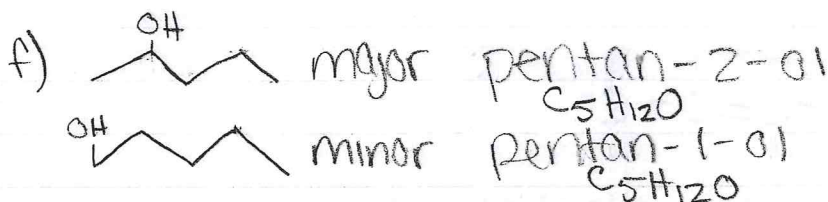 OH
f) major pentan-2-ol
C5H12O
OH
minor pentan-1-ol
C5H12O